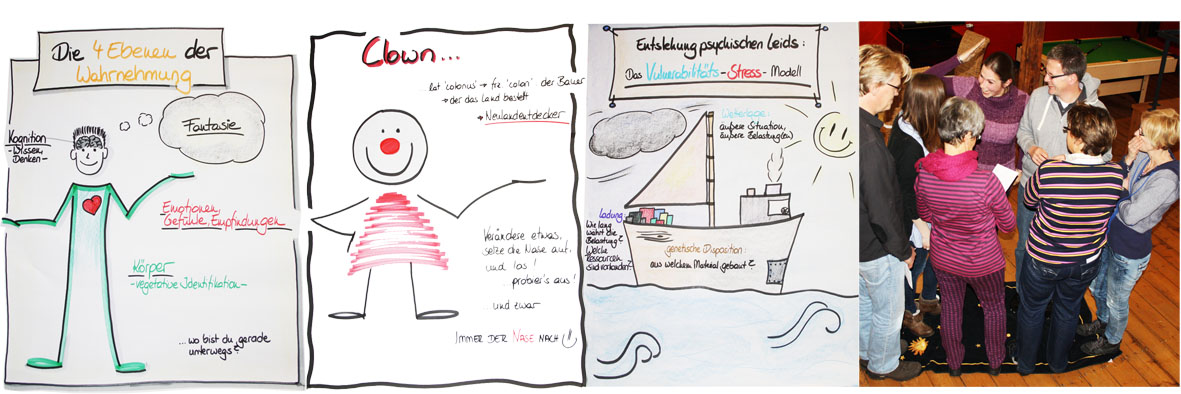 Die 4 Ebenen der
Wahrnehmung
Fantasie
Kognition
-Wissen,
Denken-
Emotionen,
Gefühle, Empfindungen
Körper
-vegetative Identifikation-
...wo bist du gerade
unterwegs?
Clown...
lat "colonus" → frz. "colon" der Bauer
→ der das Land bestellt
→ Neulandentdecker
Verändere etwas,
setze die Nase auf,
und los!
...probier's aus!
...und zwar
IMMER DER NASE NACH
Entstehung psychischen Leids:
Das Vulnerabilitäts-Stress-Modell
Wetterlage:
äußere Situation,
äußere Belastung(en)
Ladung:
Wie lang
währt die
Belastung?
Welche
Ressourcen
sind vorhanden?
genetische Disposition:
aus welchem Material gebaut?